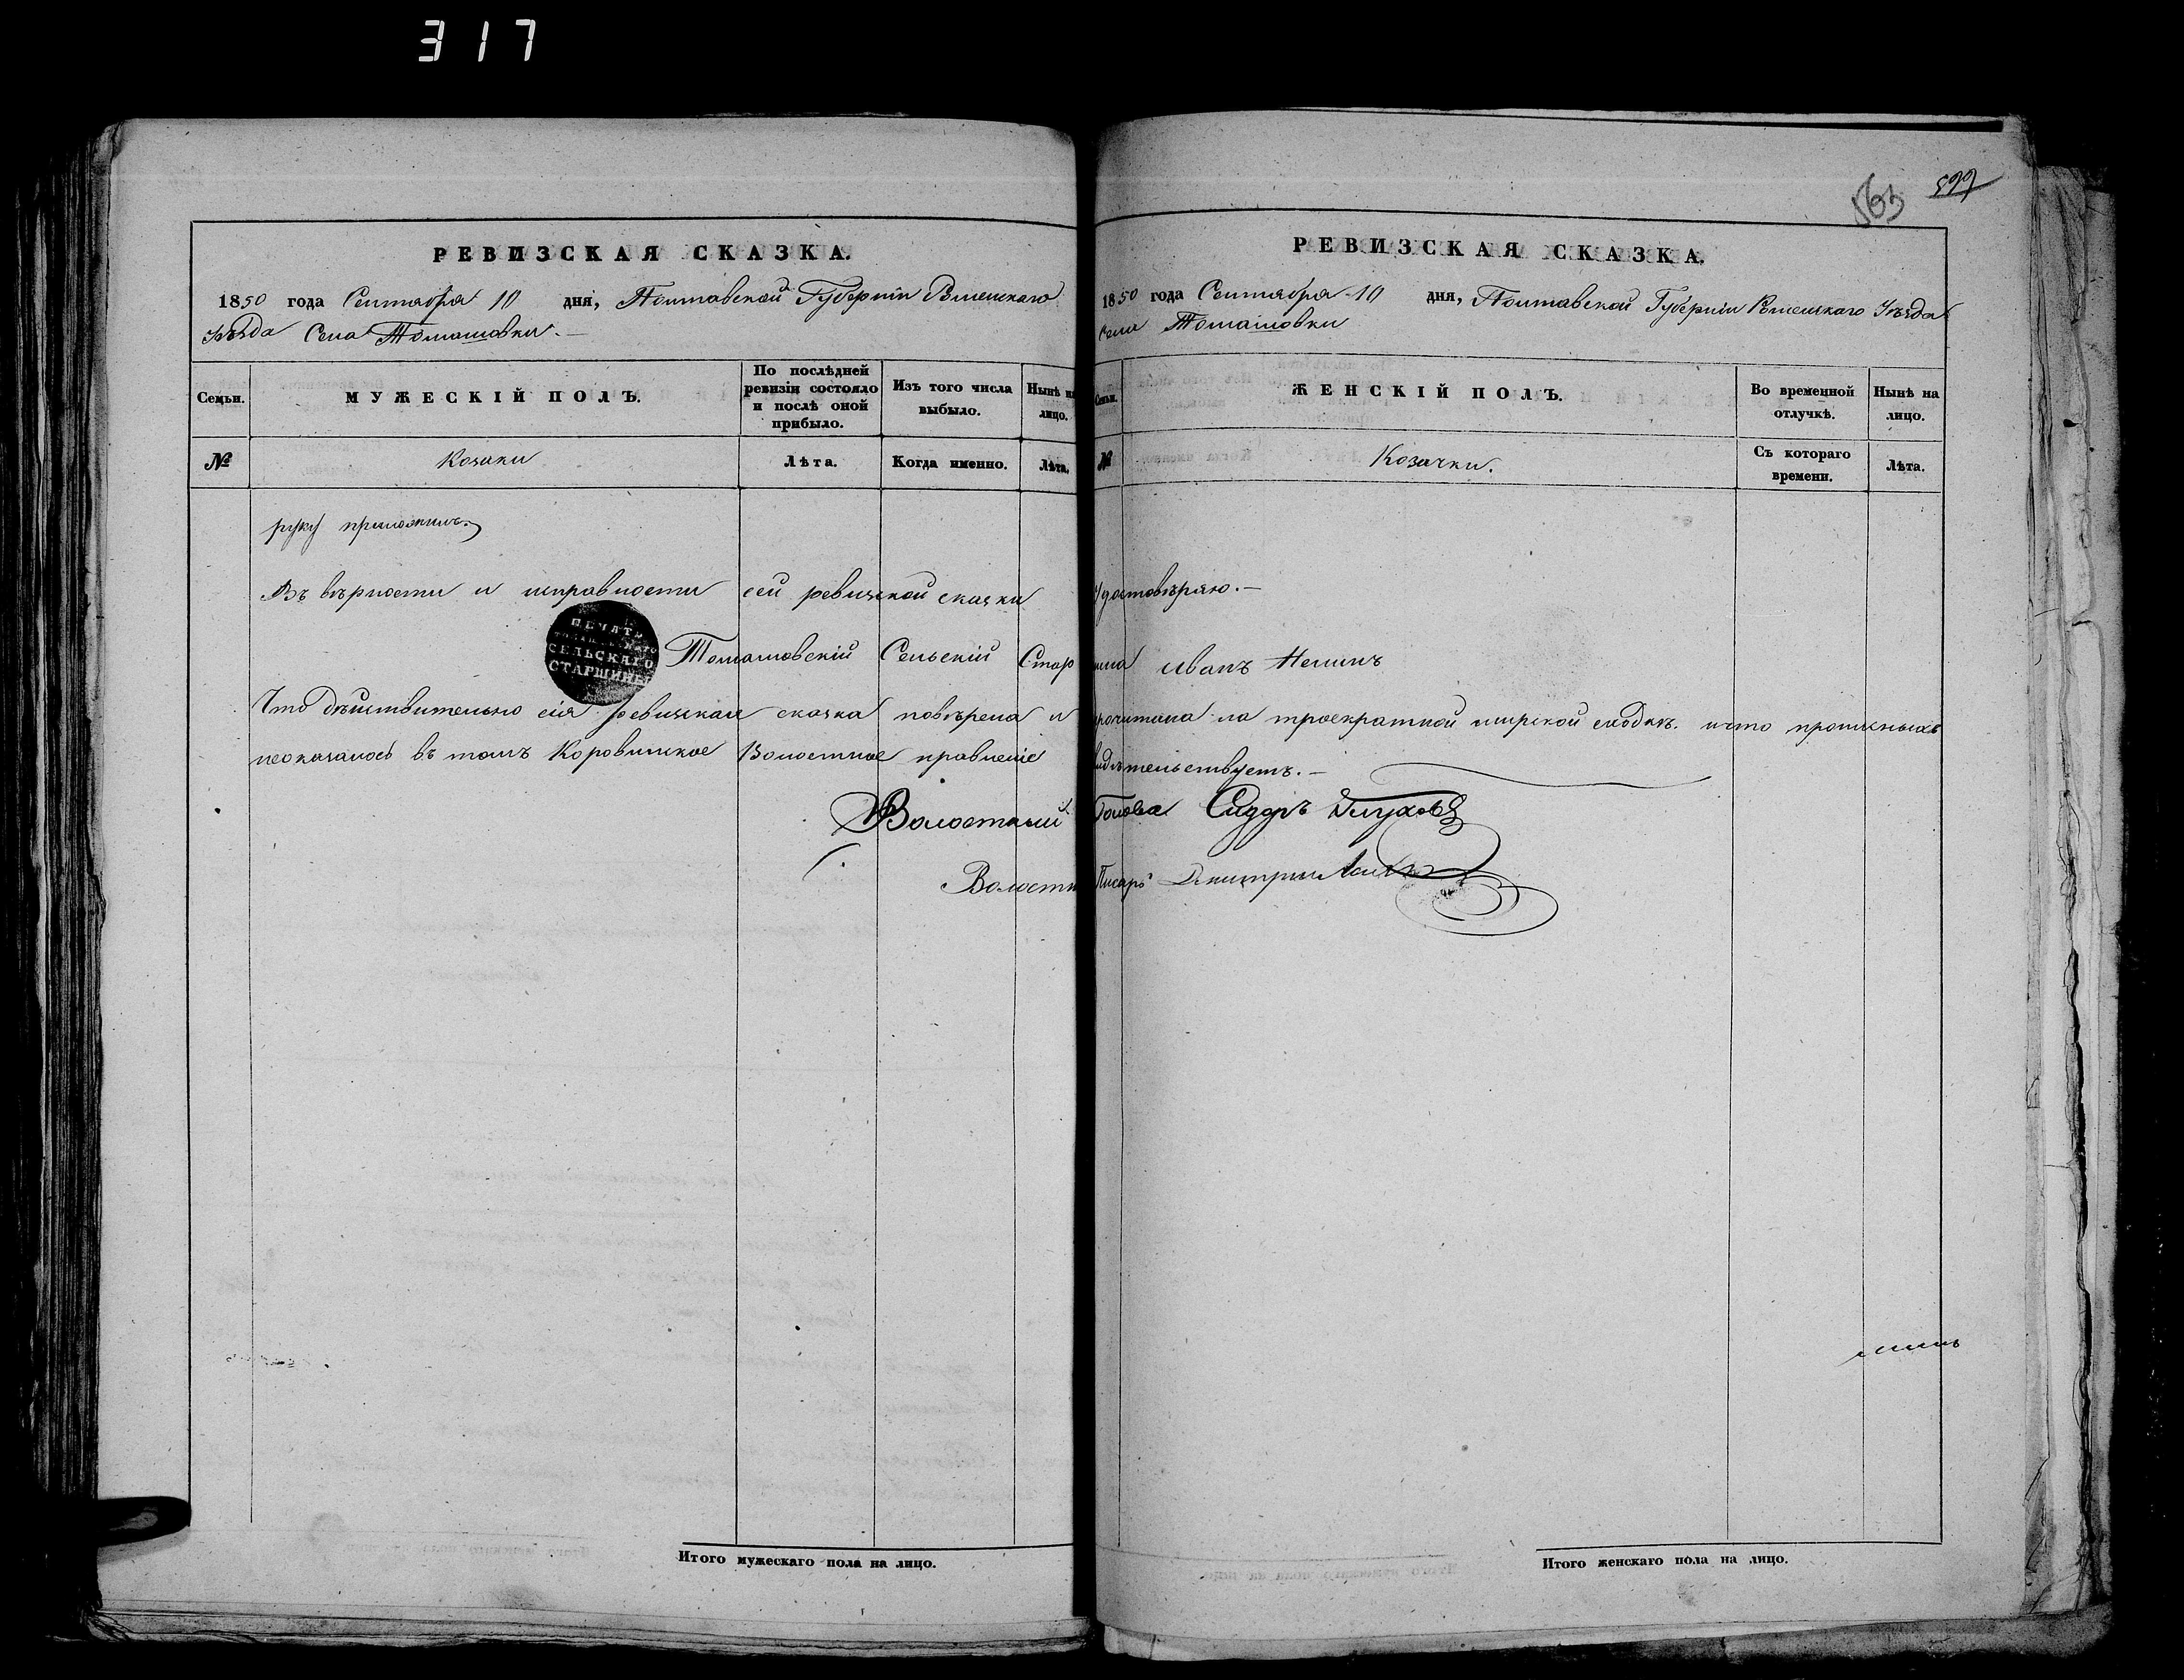 317
563 577
РЕВИЗСКАЯ СКАЗКА.
1850 года Сентября 10 дня, Полтавской Губерніи Роменскаго
Уѣзда Села Томашовки. —
Семьи. МУЖЕСКІЙ ПОЛЪ. По послѣдней ревизіи состояло и послѣ оной прибыло. Изъ того числа выбыло. Нынѣ на лицо.
№ Козаки Лѣта. Когда именно. Лѣта.
РЕВИЗСКАЯ СКАЗКА.
1850 года Сентября 10 дня, Полтавской Губерніи Роменскаго Уѣзда
Села Томашовки
Семьи. ЖЕНСКІЙ ПОЛЪ. Во временной отлучкѣ. Нынѣ на лицо.
№ Козачки. Съ котораго времени. Лѣта.
руку приложилъ.
Въ вѣрности и исправности сей ревизской сказки удостовѣряю. —
ПЕЧАТЬ
СЕЛЬСКАГО
СТАРШИНЫ
Томашовскій Сельскій Старшина Иванъ
Что дѣйствительно сія ревизская сказка повѣрена и прочитана на троекратной мирской сходкѣ. и что прописныхъ
неоказалось въ томъ Коровинское Волостное правленіе свидѣтельствуетъ. —
Волостный Голова Сидоръ Глуховъ
Волостн Писарь Дмитрій
Итого мужескаго пола на лицо.
Итого женскаго пола на лицо.